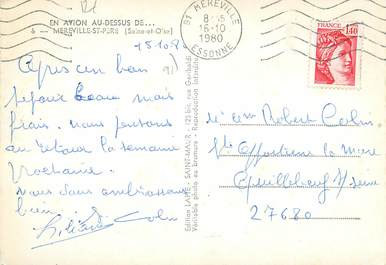 EN AVION AU-DESSUS DE...
6 — MEREVILLE-ST-PERE (Seine-et-Oise)
15 10 8
91
Après un bon
séjour beau mais
frais. nous pensons
au retour la semaine
prochaine.
nous vous embrassons
bien.
Edition LAPIE - SAINT-MAUR - 125 bis, rue Garibaldi
Véritable photo au bromure - Reproduction interdite
91 MEREVILLE
16-10
1980
ESSONNE
1,40
Robert
St la mare
Quillebeuf s/ seine
27680